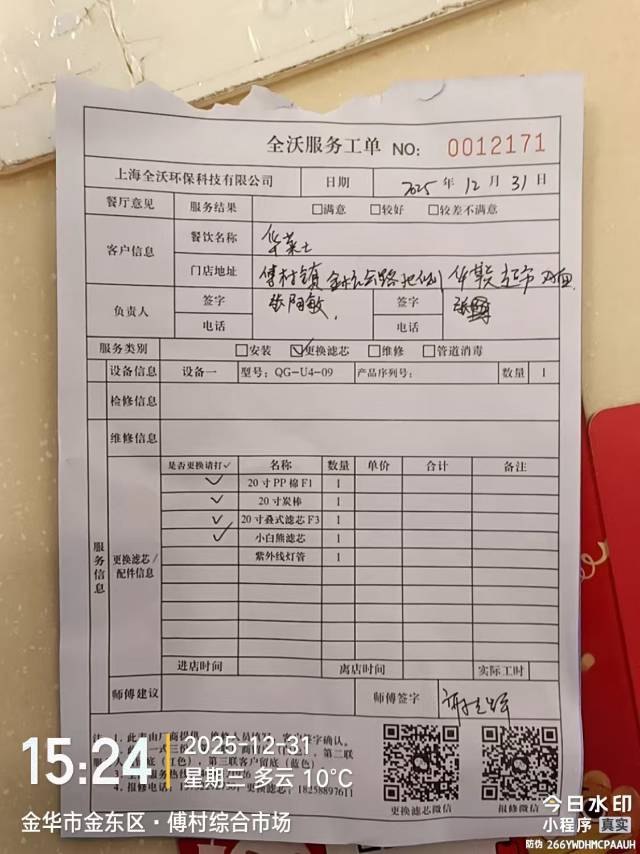 全沃服务工单 NO: 0012171
上海全沃环保科技有限公司 日期 2025年12月31日
餐厅意见 服务结果 □满意 □较好 □较差不满意
客户信息 餐饮名称 华莱士
门店地址 傅村镇
负责人 签字 张阳敏 签字
电话 电话
服务类别 □安装 ☑更换滤芯 □维修 □管道消毒
设备信息 设备一 型号: QG-U4-09 产品序列号: 数量 1
检修信息
维修信息
服务信息 更换滤芯/配件信息
是否更换请打✓ 名称 数量 单价 合计 备注
✓ 20寸PP棉F1 1
✓ 20寸炭棒 1
✓ 20寸叠式滤芯F3 1
✓ 小白熊滤芯 1
紫外线灯管 1
进店时间 离店时间 实际工时
师傅建议 师傅签字
更换滤芯微信 报修微信
15:24
2025-12-31
星期三 多云 10℃
金华市金东区·傅村综合市场
今日水印
小程序 真实
防伪 266YWDHMCPAAUH